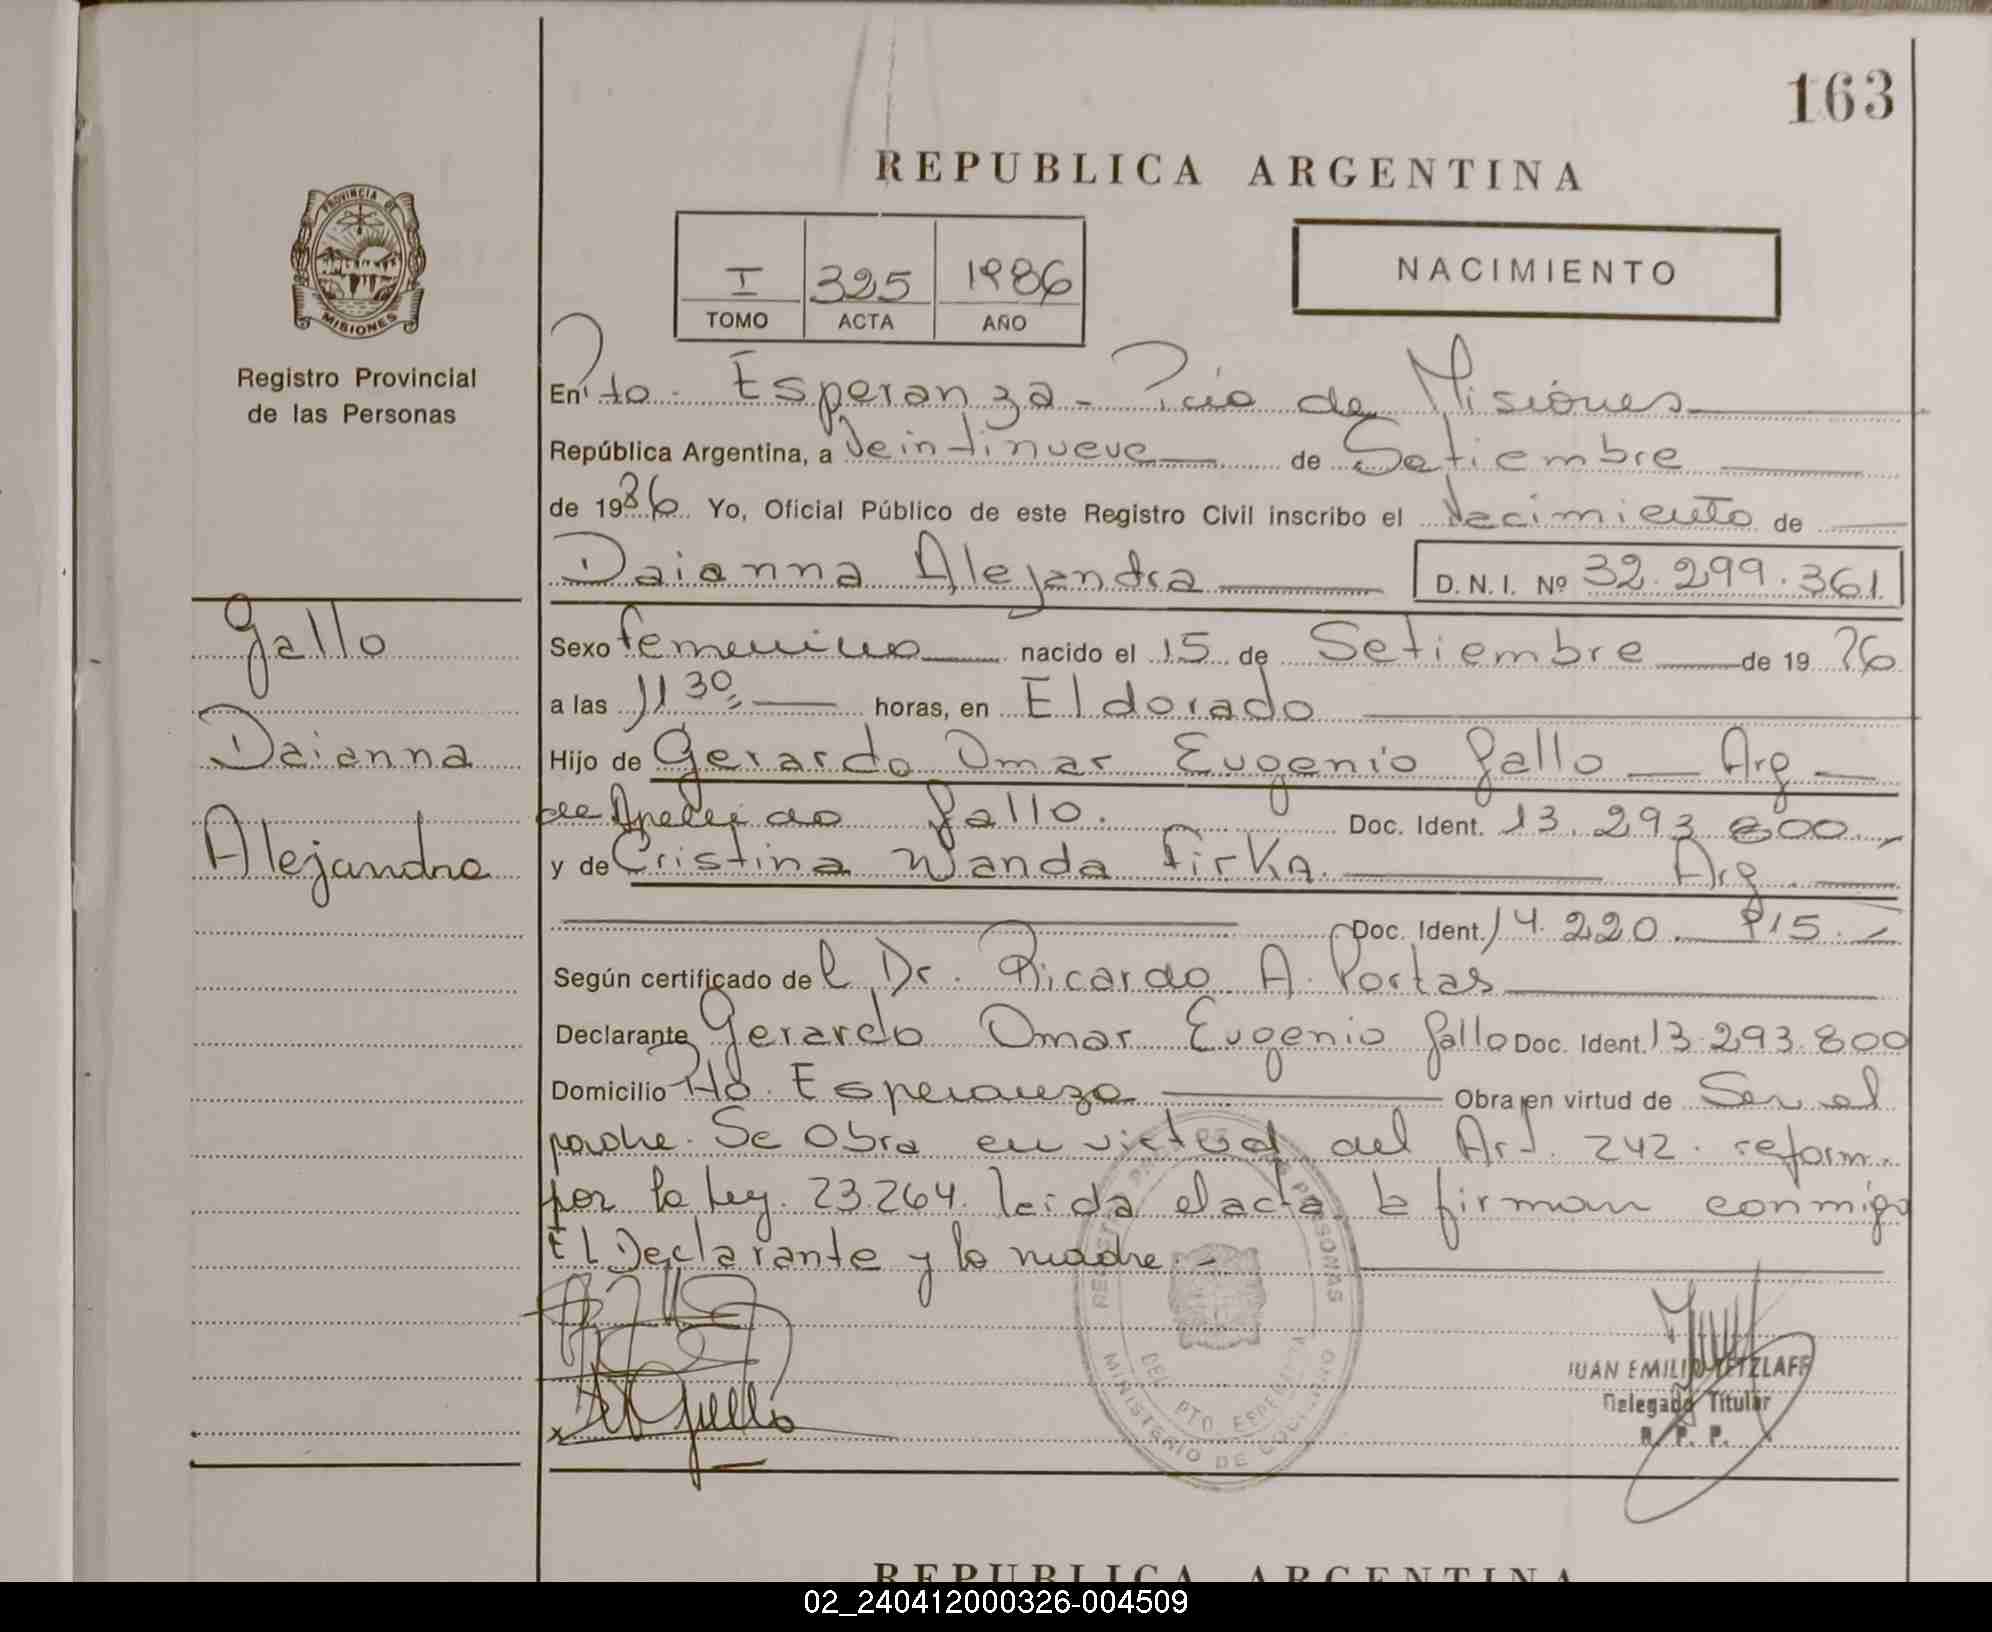 163
REPUBLICA ARGENTINA
PROVINCIA DE
MISIONES
Registro Provincial
de las Personas
I 325 1986
TOMO ACTA AÑO
NACIMIENTO
En Pto. Esperanza - Pcia de Misiones
República Argentina, a Veintinueve de Setiembre
de 1986 Yo, Oficial Público de este Registro Civil inscribo el Nacimiento de
Daianna Alejandra D.N.I. Nº 32.299.361
Gallo
Daianna
Alejandra
Sexo femenino nacido el 15 de Setiembre de 19 86
a las 11 30 horas, en Eldorado
Hijo de Gerardo Omar Eugenio Gallo Arg
de Apellido Gallo. Doc. Ident. 13.293.800.-
y de Cristina Wanda Firka. Arg
Doc. Ident. 14.220.915.-
Según certificado del Dr. Ricardo A. Portas
Declarante Gerardo Omar Eugenio Gallo Doc. Ident. 13.293.800
Domicilio Pto. Esperanza Obra en virtud de Ser el
padre. Se Obra en virtud del Art. 242. reform.
por la Ley. 23.264. leida el acta. la firman conmigo
El Declarante y la madre.-
REGISTRO PERSONAS
DEL PTO. ESPERANZA
MINISTERIO DE GOBIERNO
JUAN EMILIO TETZLAFF
Delegado Titular
R. P. P.
REPUBLICA ARGENTINA
02_240412000326-004509